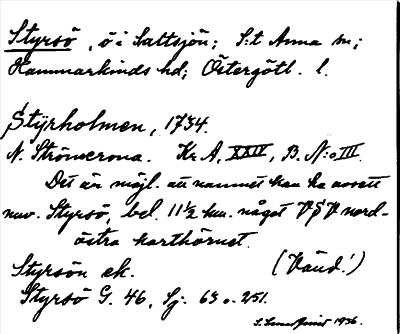 Styrsö, ö i Saltsjön; S:t Anna sn;
Hammarkinds hd; Östergötl. l.
Styrholmen, 1734.
N. Strömcrona. Kr. A, XXIV, B. N:o III.
Det är möjl. att namnet kan ha avsett
nuv. Styrsö, bel. 11½ km. något VSV nord-
östra karthörnet.
Styrsön ek. (Vänd!)
Styrsö G. 46, Sj: 63 o. 251.
1936.